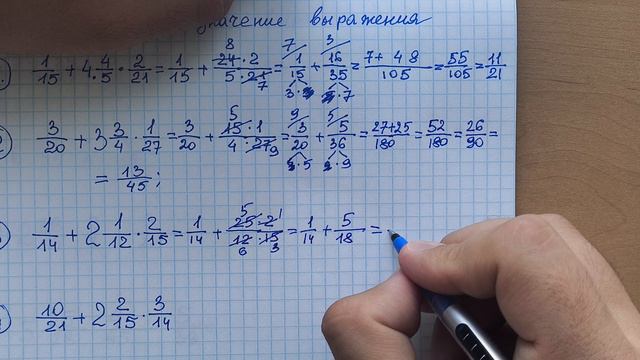 значение выражения
1/15 + 4 4/5 · 2/21 = 1/15 + 24·2/5·21 = 1/15 + 16/35 = 7+48/105 = 55/105 = 11/21
3/20 + 3 3/4 · 1/27 = 3/20 + 15·1/4·27 = 3/20 + 5/36 = 27+25/180 = 52/180 = 26/90 =
= 13/45;
1/14 + 2 1/12 · 2/15 = 1/14 + 25·2/12·15 = 1/14 + 5/18 =
10/21 + 2 2/15 · 3/14